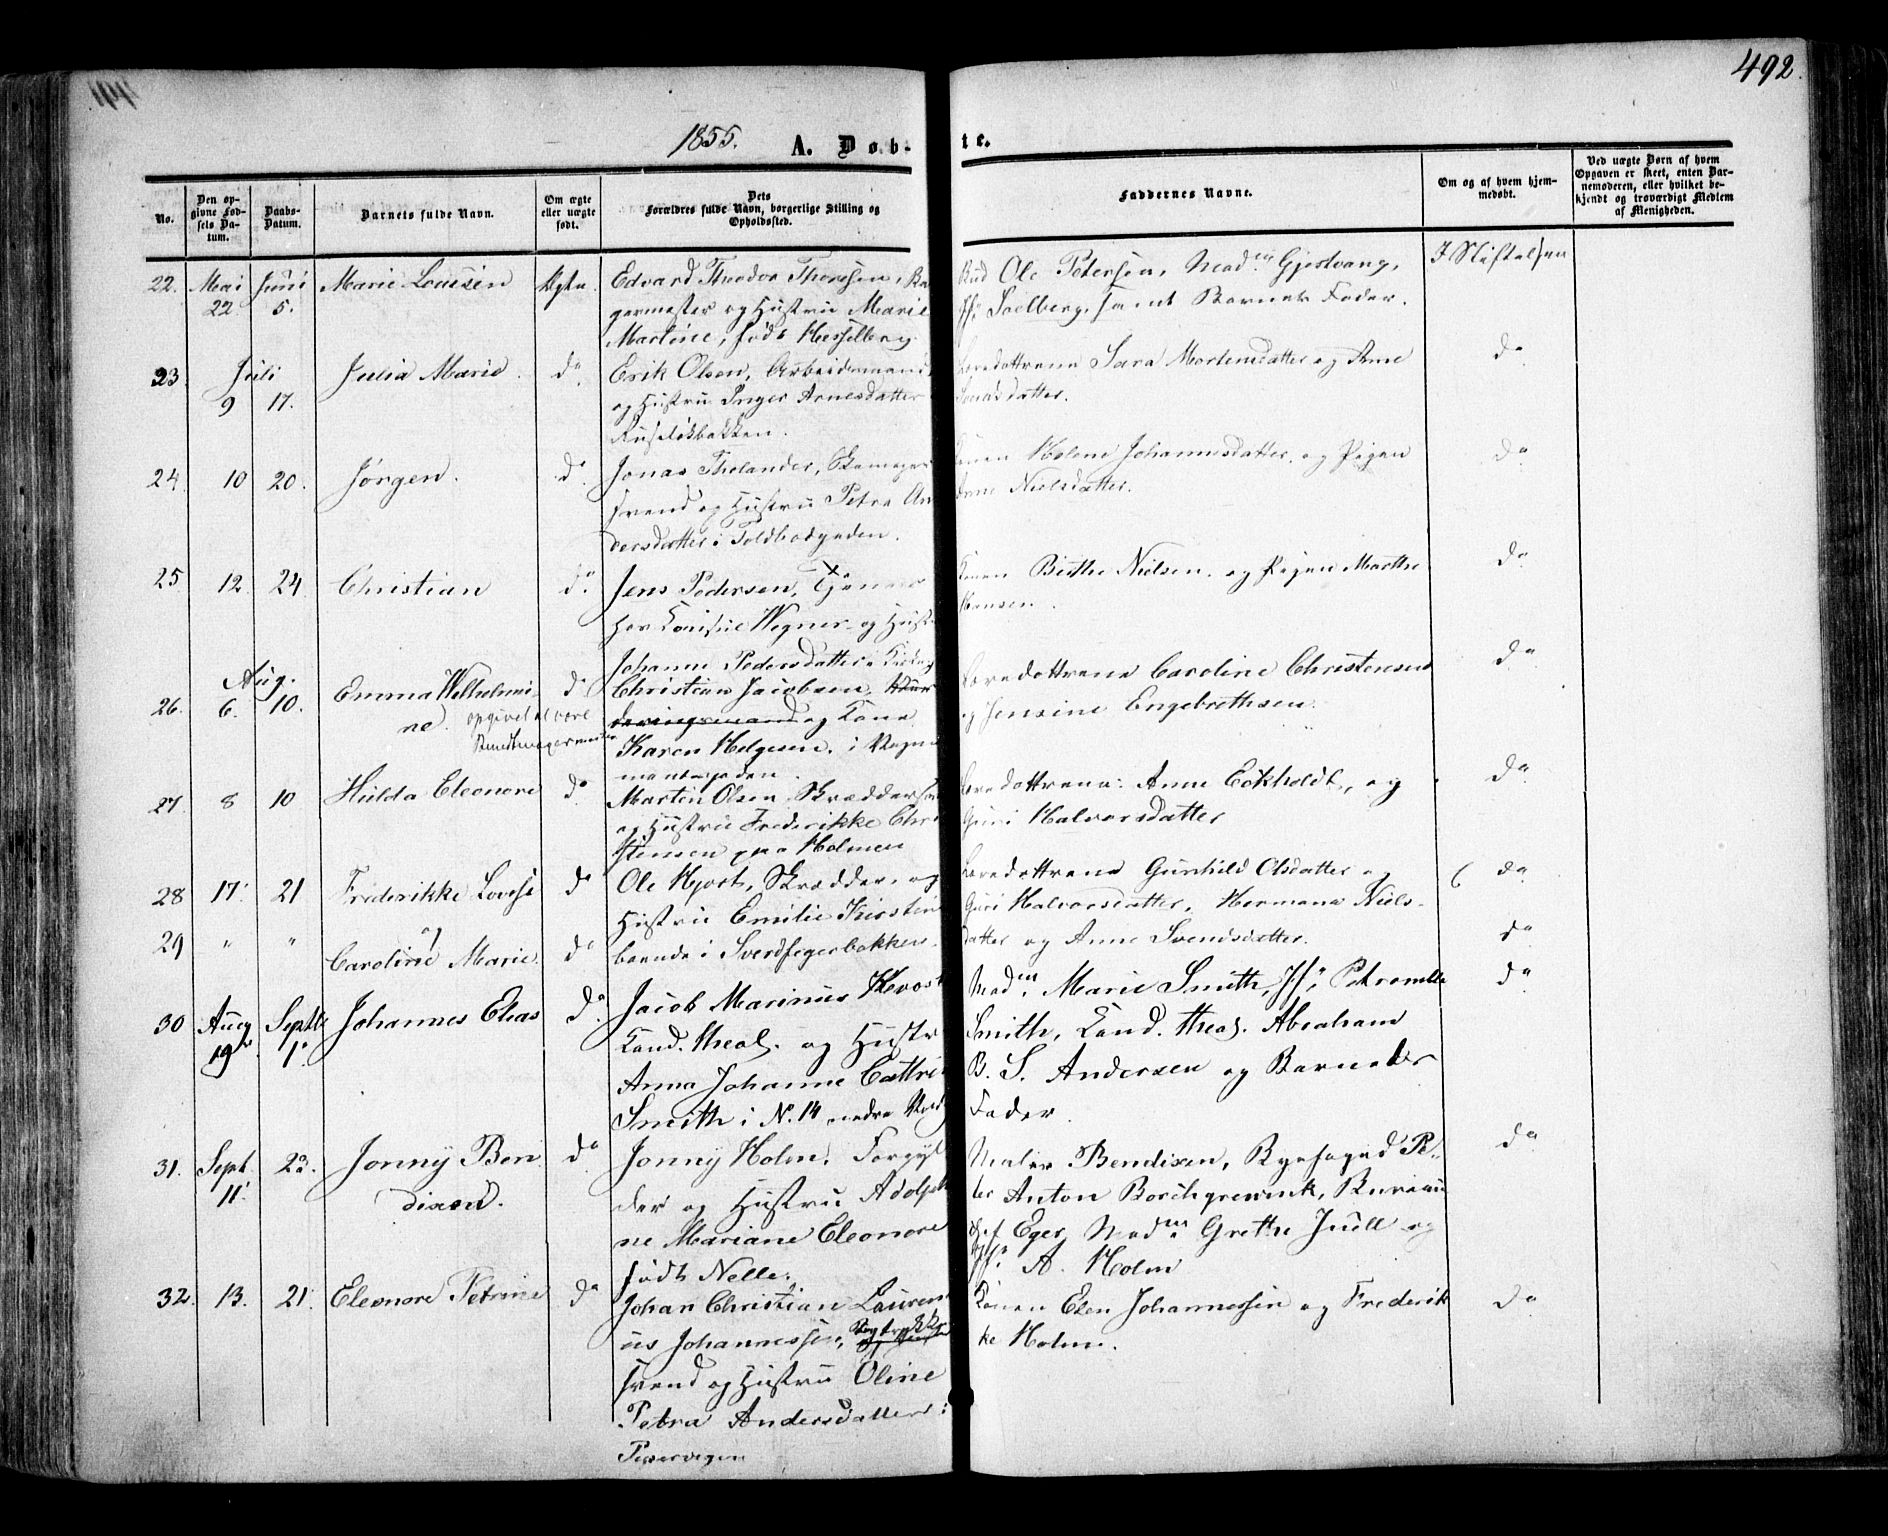 492.
1855. A. Døb- te.
No.
Den op-
givne Fød-
sels Da-
tum.
Daabs-
Datum.
Barnets fulde Navn.
Om ægte
eller uægte
født.
Dets
Forældres fulde Navn, borgerlige Stilling og
Opholdssted.
Faddernes Navne.
Om og af hvem hjem-
medøbt.
Ved uægte Børn af hvem
Opgaven er skeet, enten Bar-
nemoderen, eller hvilket be-
kjendt og troværdigt Medlem
af Menigheden.
22. Mai 22 Juni 5. Marie Lovisen Ægte.
Edvard Theodor Thoresen, Ba-
germester og Hustru Marie
Martine, født Hesselberg
Ole Petersen, Madm Gjestvang,
Soelberg, samt Barnets Fader.
I Stiftelsen
23. Juli 9 17. Julia Marie do
Erik Olsen, Arbeidsmand
og Hustru Inger Arnesdatter
Ruseløkbakken.
Sara Mortensdatter og Ane
Svendsdatter.
do
24. 10 20. Jørgen. do
Jonas Thelander, Skomager
svend og Hustru Petra An
dersdatter i Toldbodgaden.
Konen Helene Johannesdatter og Pigen
Anne Nielsdatter.
do
25 12. 24 Christian do
Jens Pedersen, Tjener
hos Konsul Wegner og Hust
Johanne Pedersdatter
Konen Birthe Nielsen og Pigen Marthe
Hansen.
do
26. Aug. 6. 10. Emma Wilhelmi-
ne. opgivet at være
Buntmagermester
do
Christian Jacobsen,
og Kone
Karen Helgesen. i
Caroline Christensen
og Jensine Engebrethsen
do
27. 8 10 Hulda Eleonore do
Morten Olsen Skrædder
og Hustru Frederikke Chri
stensen paa Holmen
Anne Eckholdt, og
Guri Halvorsdatter
do
28 17. 21 Frederikke Lovise do
og
29 " " Caroline Marie do
Ole Hjort, Skrædder og
Hustru Emilie Kirstine
boende i Sverdfegerbakken
Gunhild Olsdatter og
Guri Halvorsdatter, Hermana Niels-
datter og Anne Svendsdatter.
do
do
30 Aug 19 Septbr 1. Johannes Elias do
Jacob Marinus
Kand. theol. og Hustr
Anna Johanne Cathri
Smith i N. 14 nedre
Madm Marie Smith, Petronelle
Smith, Kand. theol. Abraham
B. S. Andersen og Barnets
Fader.
do
31. Sept. 11. 23. Jonny Ben
dixen. do
Jonny Holm, Forgyl
der og Hustru Adolph
ne Mariane Eleonore
født Nelle.
Maler Bendixen, Byfoged Pe-
ter Anton Borchgrevink, Bureau
chef Eger, Madm Grethe Juell og
A. Holm
do
32. 13. 21. Eleonore Petrine do
Johan Christian Lauren
us Johannessen, Bogtrykker
svend og Hustru Oline
Petra Andersdatter:
Konen Elen Johannessen og Frederik
ke Holm.
do